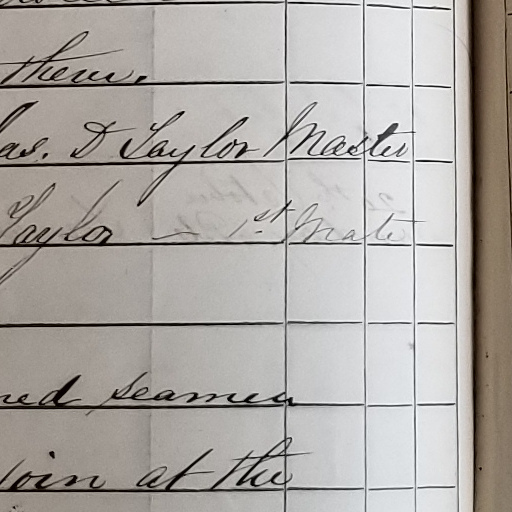 them.
as. D Taylor Master
Taylor — 1st Mate
ned seamen
join at the